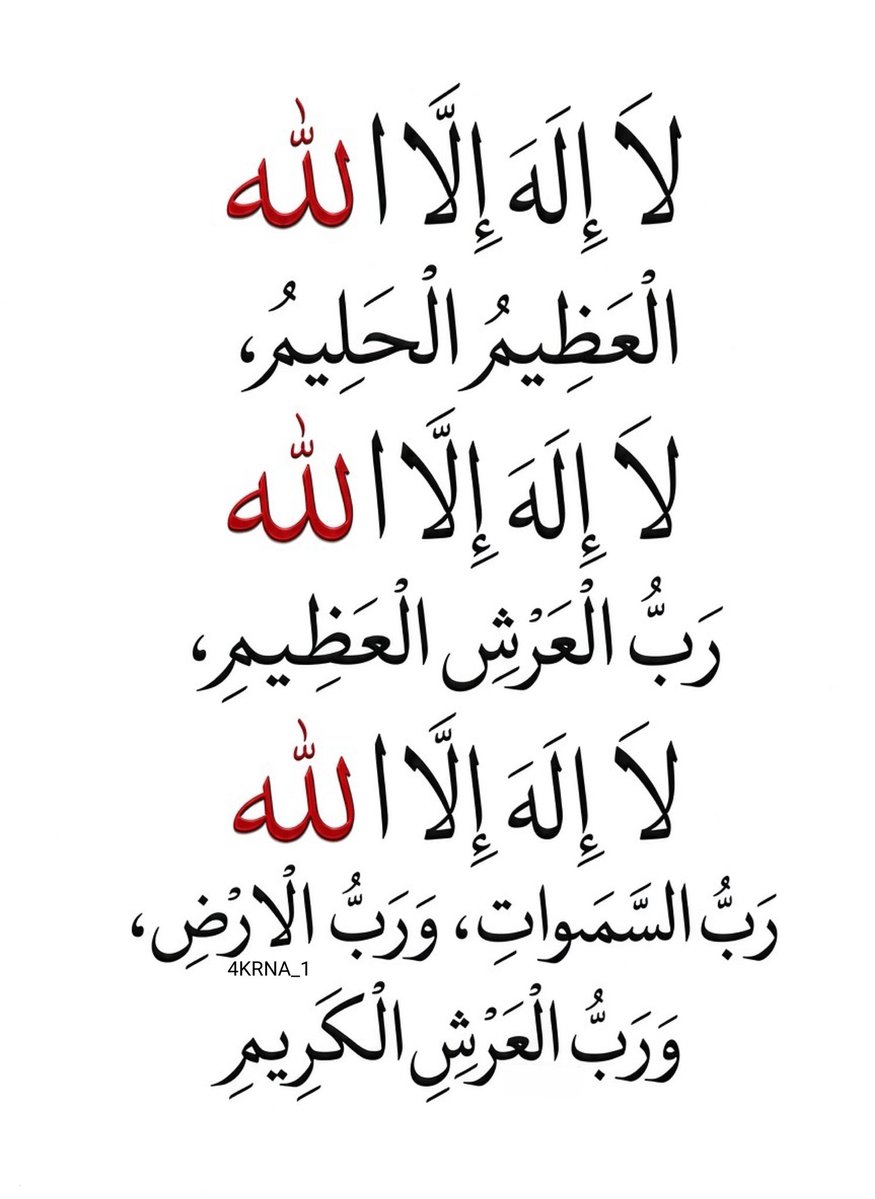 لاَ إِلَهَ إِلَّا اللّٰه
الْعَظِيمُ الْحَلِيمُ،
لاَ إِلَهَ إِلَّا اللّٰه
رَبُّ الْعَرْشِ الْعَظِيمِ،
لاَ إِلَهَ إِلَّا اللّٰه
رَبُّ السَّمَواتِ، وَرَبُّ الْارْضِ،
4KRNA_1
وَرَبُّ الْعَرْشِ الْكَرِيمِ